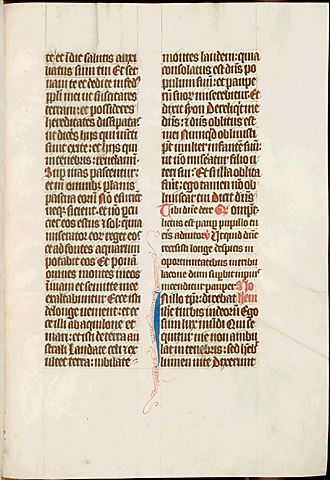 te et i die salutis auxi
liatus sum tui Et ser
uaui te et dedi te i fed9
ppli mei ut suscitares
terram: et possideres
hereditates dissipatas
ut dicēs hijs qui uicti
sunt exite: et hijs qui
in tenebris: reuelami.
Sup uias pascentur:
et in omnibz planis
pascua eorū Nō esuriēt
neqz sicient: et nō percu
ciet eos estus z sol: quia
miserator eor reget eos
ad fontes aquarum
potabit eos Et ponā
omnes montes meos
in uiam et semite mee
exaltabuntur Ecce isti
de longe uenient: et ec
ce illi ab aquilone et
mari: et isti de terra au
strali Laudate celi z ex
ultet terra: iubilate
montes laudem: quia
consolatus est dns po
pulum suū: et paupe
rū suor miserebitur Et
dixit syon Dereliqt me
dns: z dns oblitus est
mei Nunqd obliuisci
pt mulier infantē suū:
et nō misereatur filio u
teri sui: Et si illa oblita
fuit: ego tamen nō ob
liuiscar tui dicit dns
Tibi dne dere
est paup pupillo tu
eris adiutor Ut quid dne
recessisti longe despicis in
oportunitatibus in tribu
lacone dum supbit impi9
incenditur pauper
In illo tpr: dicebat ihesus
turbis iudeorū Ego
sum lux mūdi Qui se
quitur me non ambu
lat in tenebris: sed hēbit
lumen uite Dixerunt